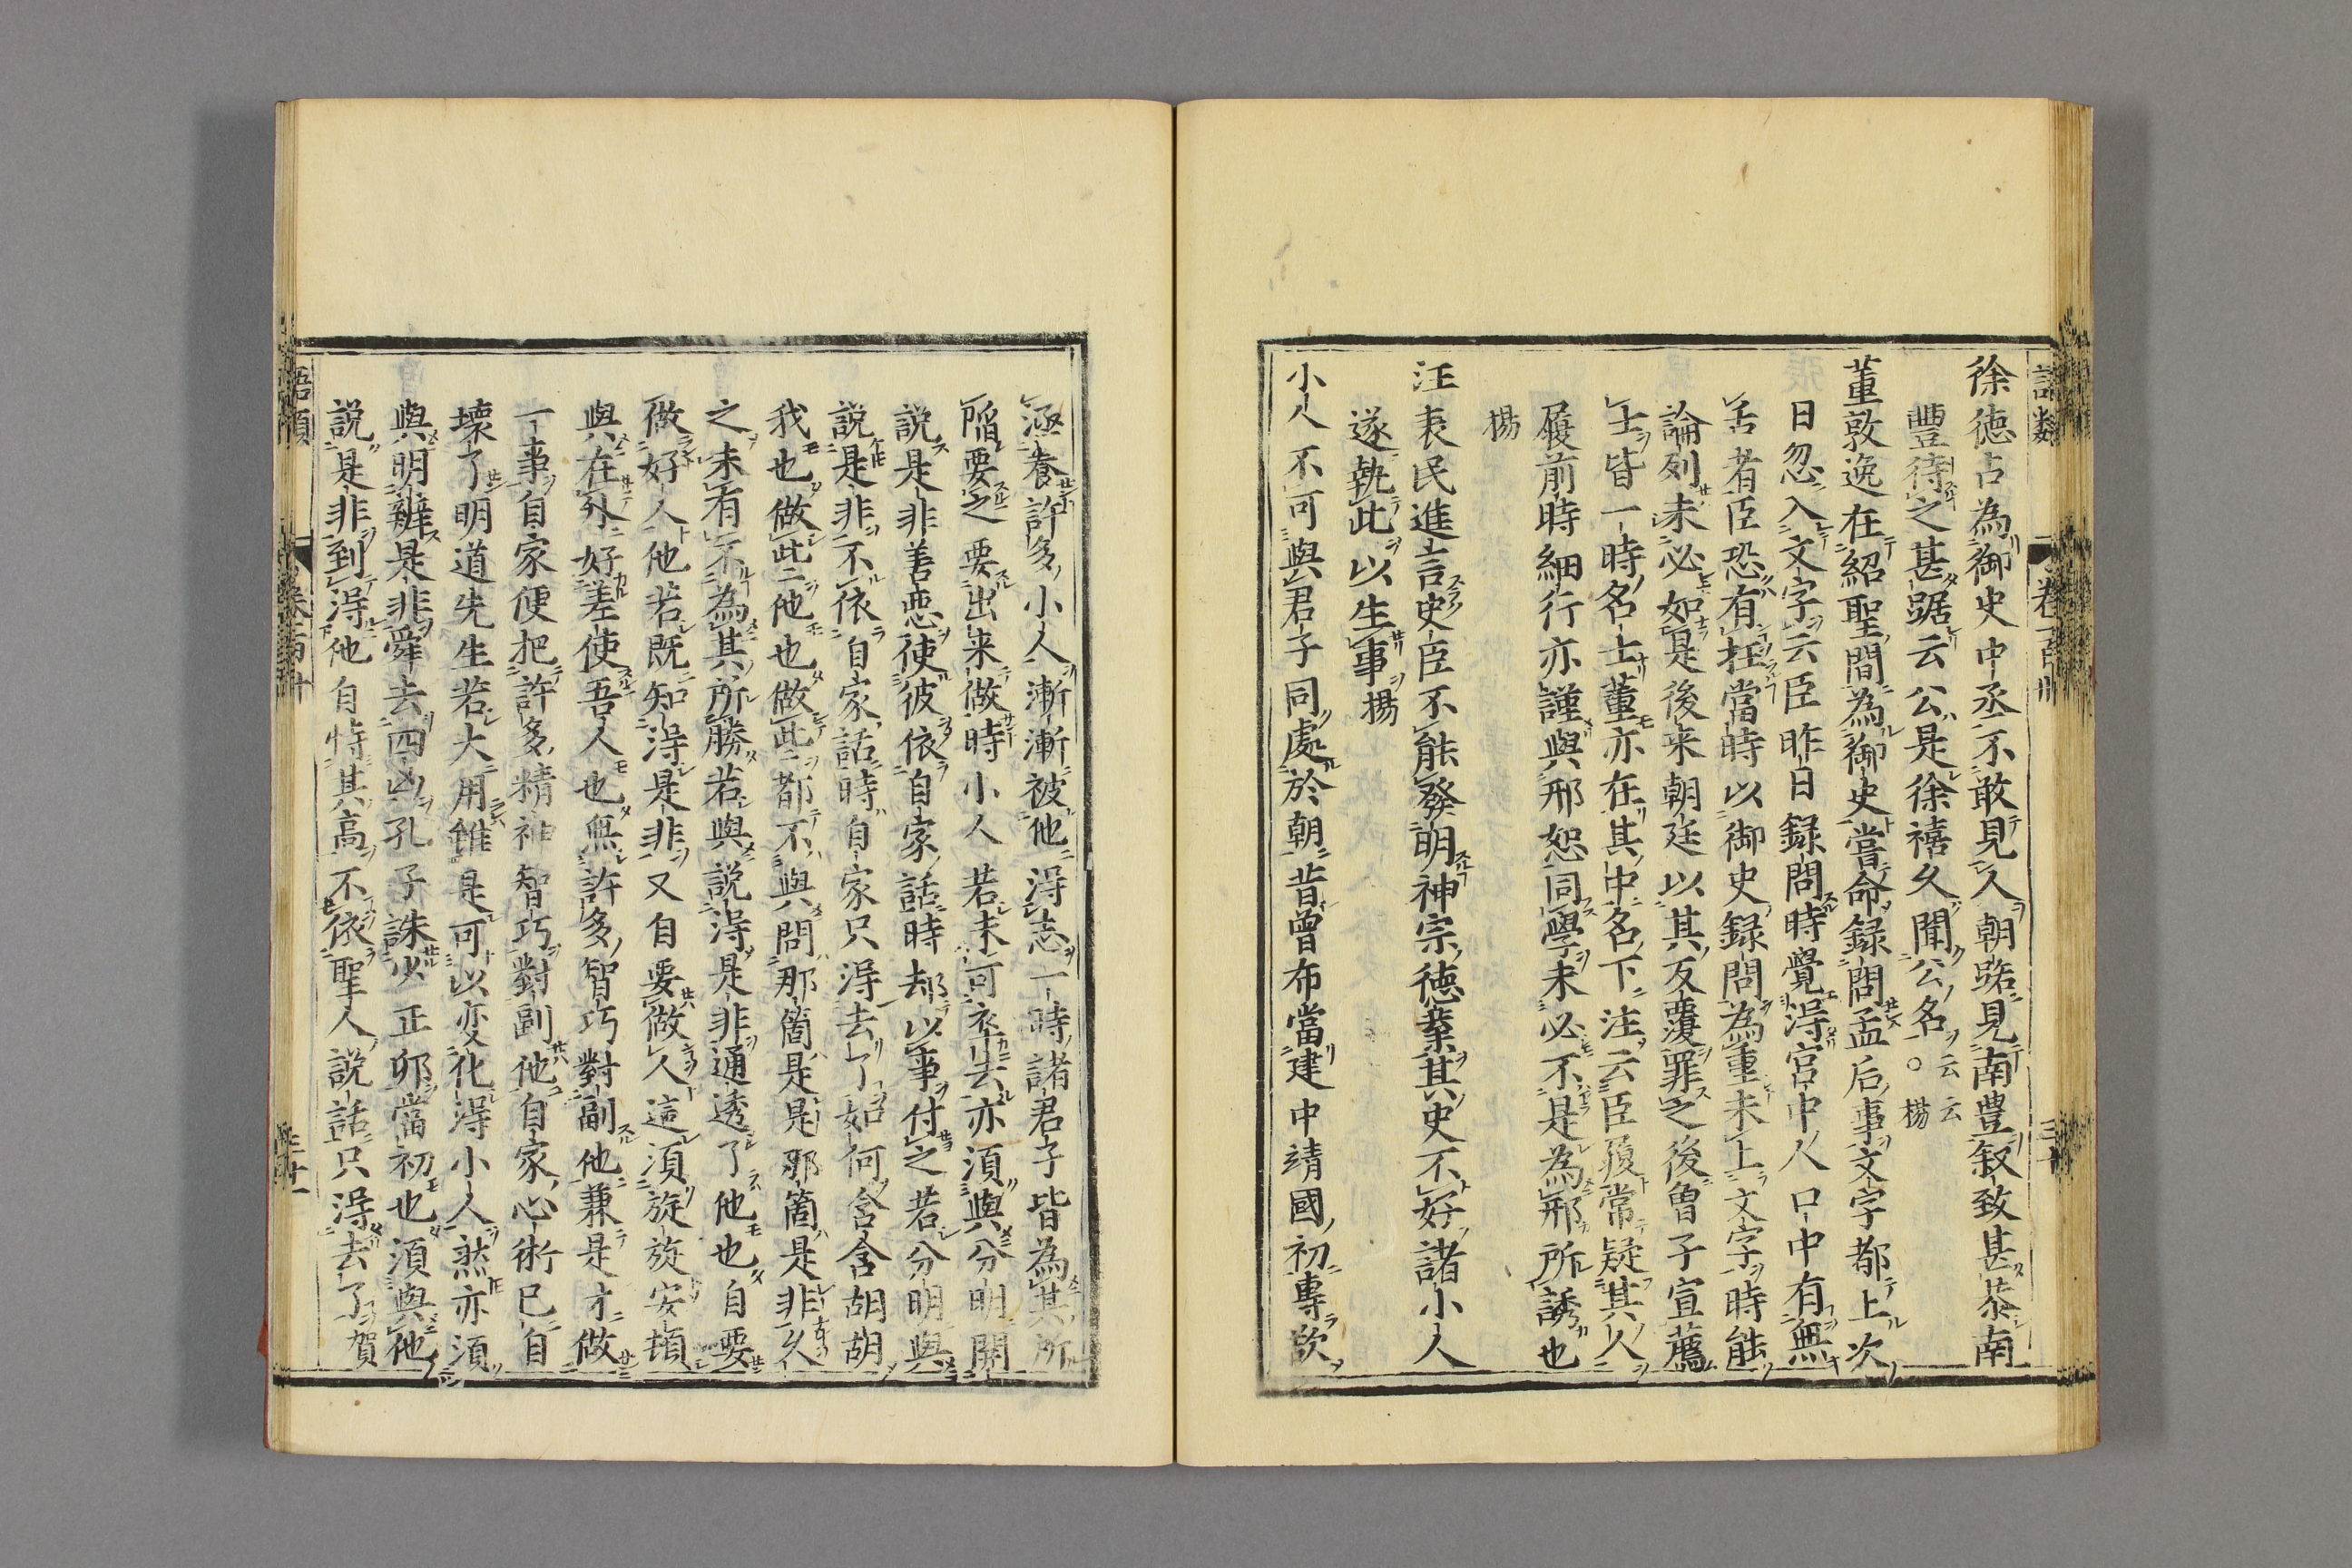 語類　卷百卅　三十
徐徳占為御史中丞不敢見人朝踞見南豊叙致甚恭南
豐待之甚踞云公是徐禧久聞公名云云○楊
董敦逸在紹聖間為御史嘗命録問孟后事文字都上次
日忽入文字云臣昨日録問時覺淂宫中人口中有無
舌者臣恐有枉當時以御史録問為重未上文字時能
論列未必如是後来朝廷以其反覆罪之後曾子宣薦
士皆一時名士董亦在其中名下注云臣履常疑其人
履前時細行亦謹與邢恕同學未必不是為邢所誘也
楊
汪表民進言史臣不能發明神宗徳業其史不好諸小人
遂執此以生事楊
小人不可與君子同處於朝昔曾布當建中靖國初專欲
涵養許多小人漸漸被他淂志一時諸君子皆為其所
陷要之要出来做時小人若未可丞去亦須與分明開
説是非善悪使彼依自家話時却以事付之若分明與
説是非不依自家話時自家只淂去了如何含含胡胡
我也做此二他也做此二都不與問那箇是是那箇是非久
之未有不為其所勝若與説淂是非通透了他也自要
做好人他若既知淂是非又自要做人這須旋旋安頓
與在外好差使吾人也無許多智巧對副他兼是才做
一事自家便把許多精神智巧對副他自家心術已自
壊了明道先生若大用雖是可以変化淂小人然亦須
與明辨是非舜去四凶孔子誅少正卯當初也須與他
説是非到淂他自恃其高不依聖人説話只淂去了賀
語類　卷百卅　三十一